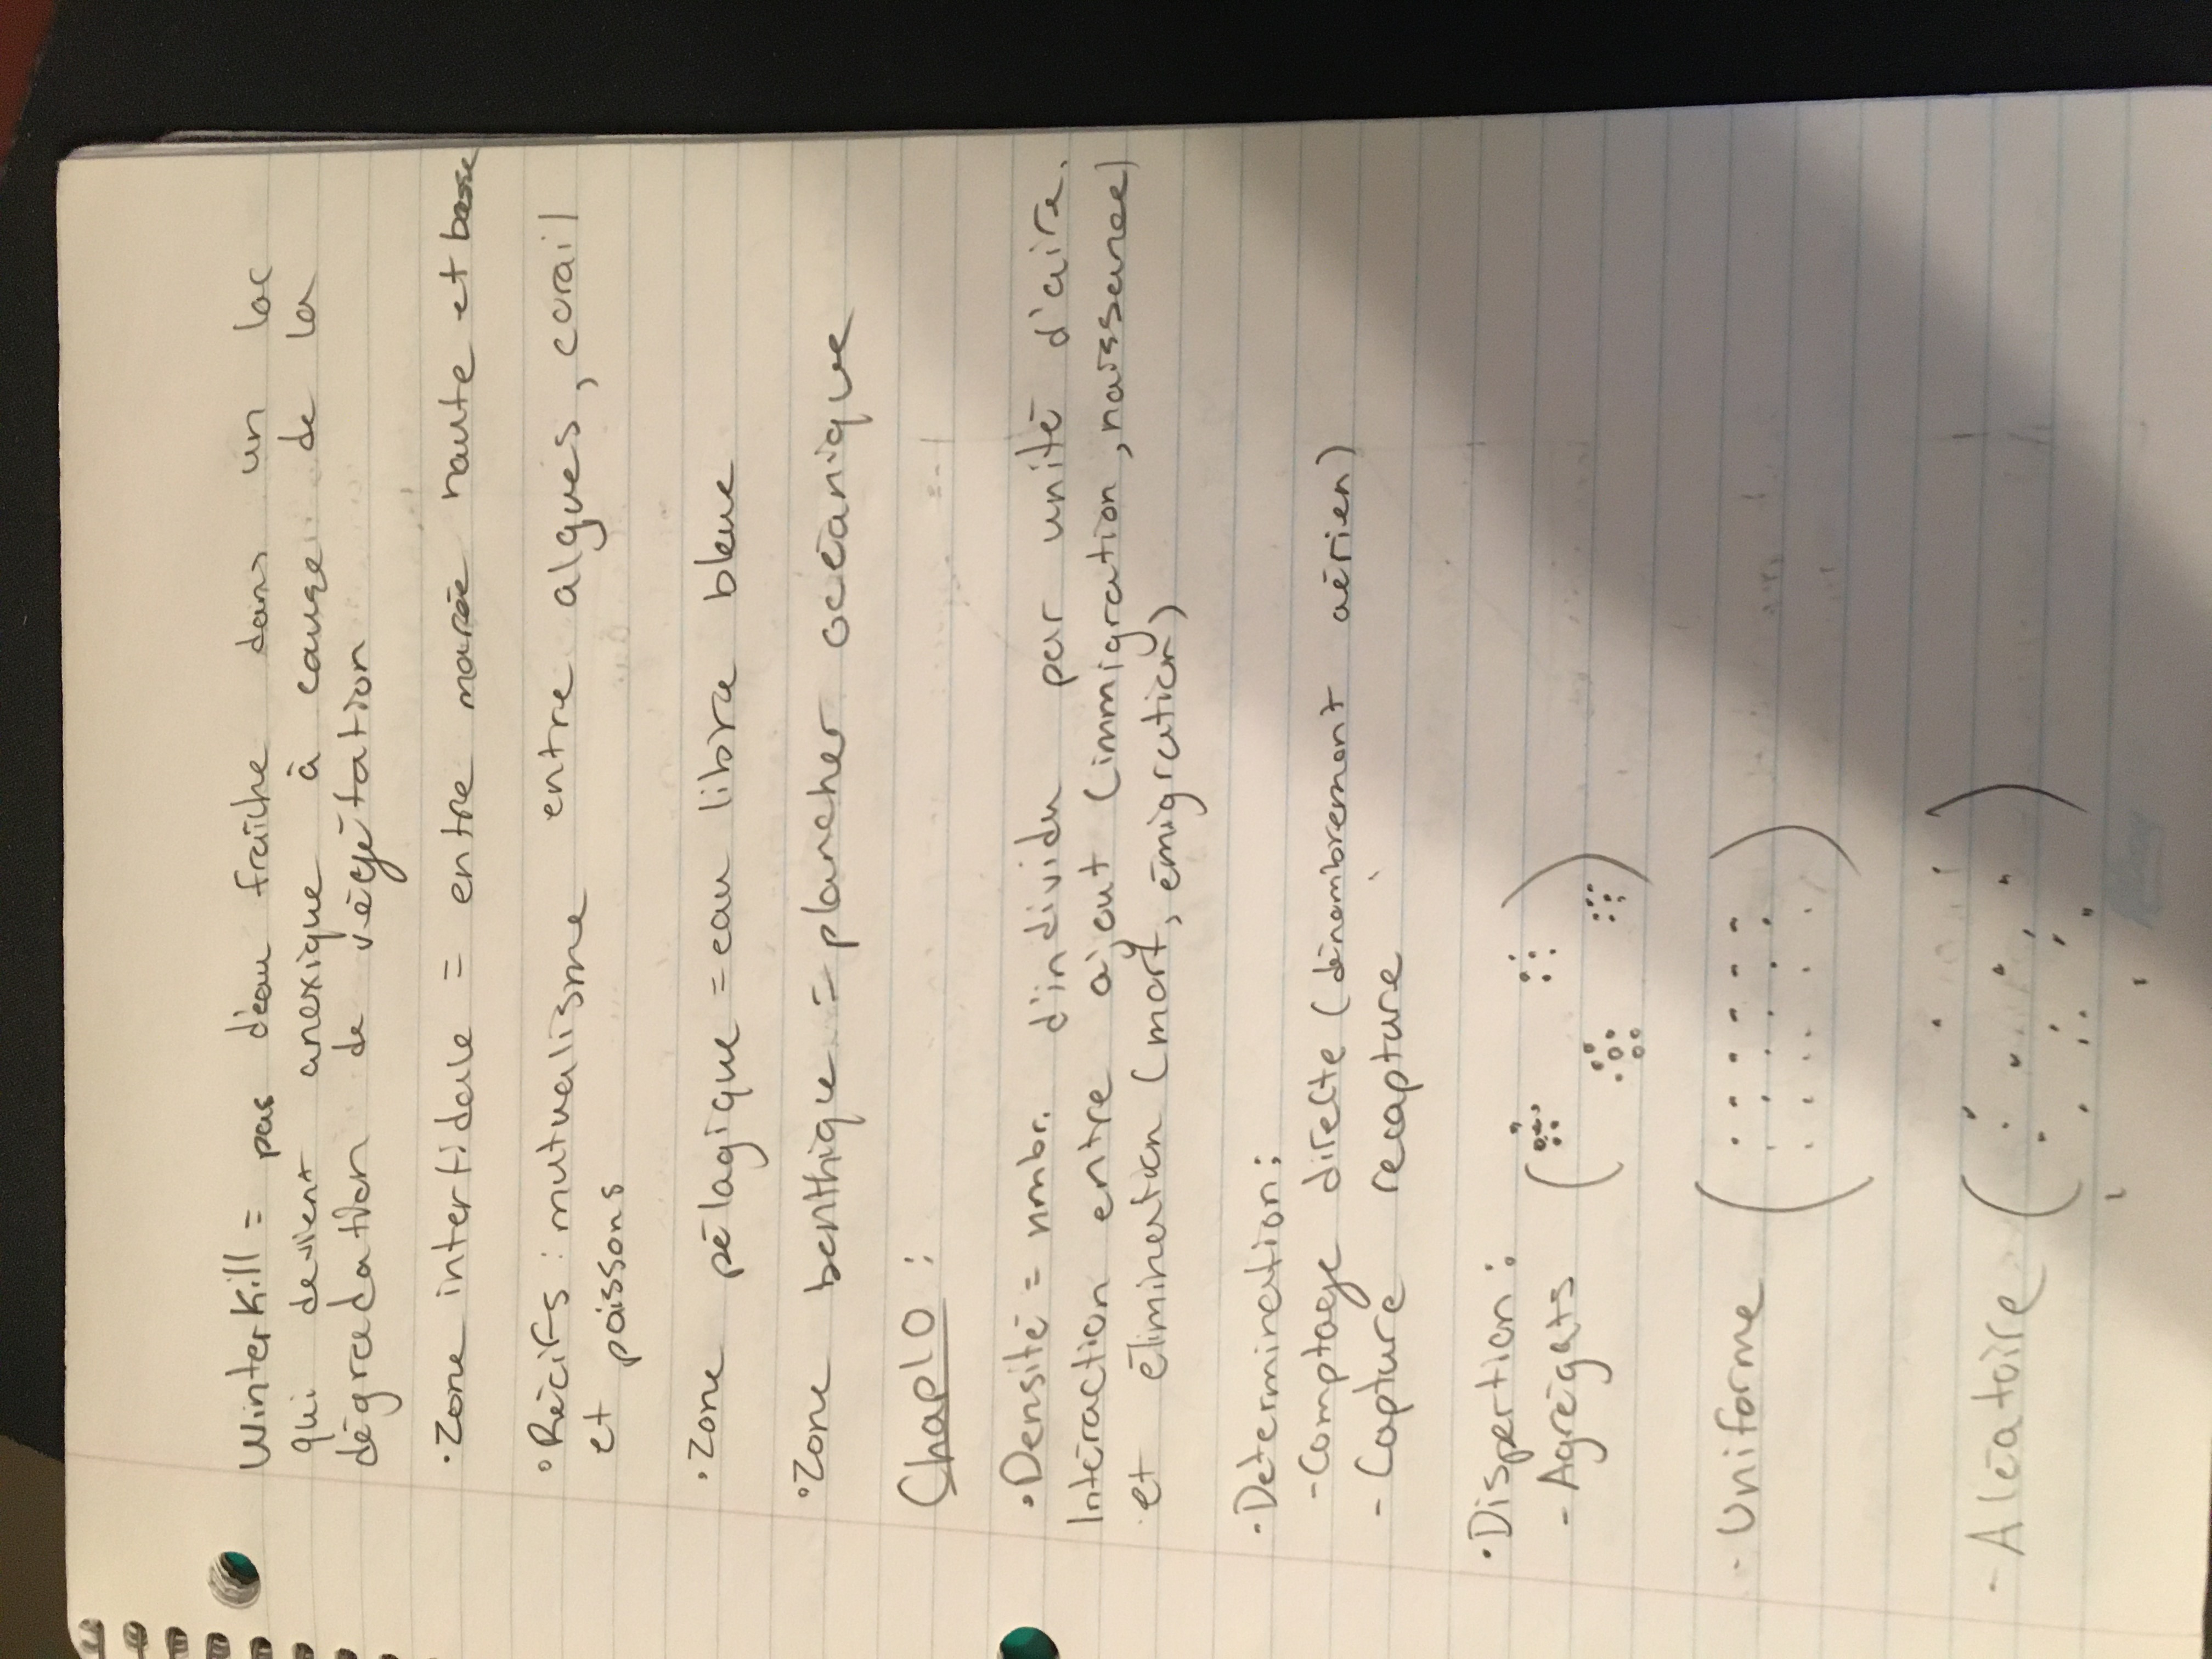 Winterkill = pas d'eau fraîche dans un lac
qui devient anexique à cause de la
dégradation de végétation
• Zone intertidale = entre marée haute et basse
• Récifs : mutualisme entre algues, corail
et poissons
• Zone pélagique = eau libre bleue
• Zone benthique = plancher océanique
Chap 10 :
• Densité = nmbr. d'individu par unité d'aire.
Intéraction entre ajout (immigration, naissance)
et élimination (mort, émigration)
• Determination :
- Comptage directe (dénombrement aérien)
- Capture recapture
• Dispertion :
- Agrégats ( )
- Uniforme ( )
- Aléatoire ( )